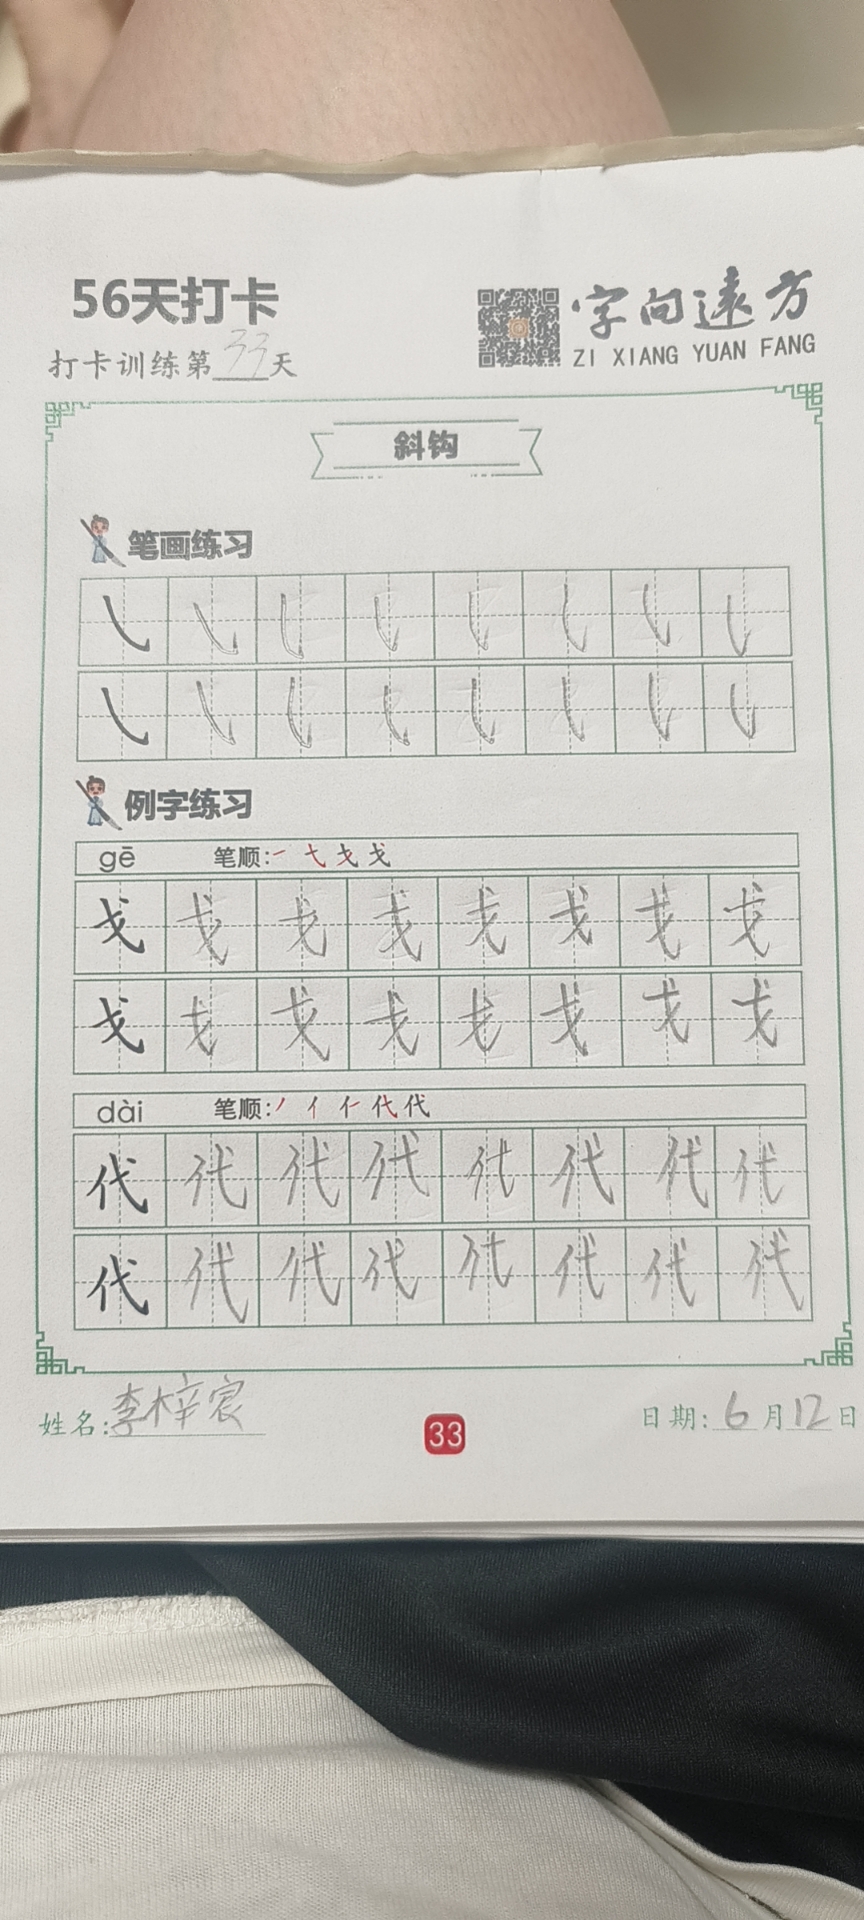 56天打卡
打卡训练第33天
字向远方
ZI XIANG YUAN FANG
斜钩
笔画练习
㇂ ㇂ ㇂ ㇂ ㇂ ㇂ ㇂ ㇂
㇂ ㇂ ㇂ ㇂ ㇂ ㇂ ㇂ ㇂
例字练习
gē 笔顺:一 七 戈 戈
戈 戈 戈 戈 戈 戈 戈 戈
戈 戈 戈 戈 戈 戈 戈 戈
dài 笔顺:丿 亻 仁 代 代
代 代 代 代 代 代 代 代
代 代 代 代 代 代 代 代
姓名:李梓宸
33
日期:6月12日